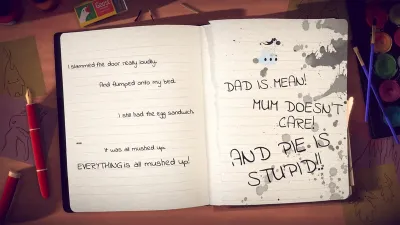 I slammed the door really loudly.
And flumped onto my bed.
I still had the egg sandwich.
It was all mushed up.
EVERYTHING is all mushed up!
DAD IS MEAN!
MUM DOESN'T
CARE!
AND PIE IS
STUPID!!